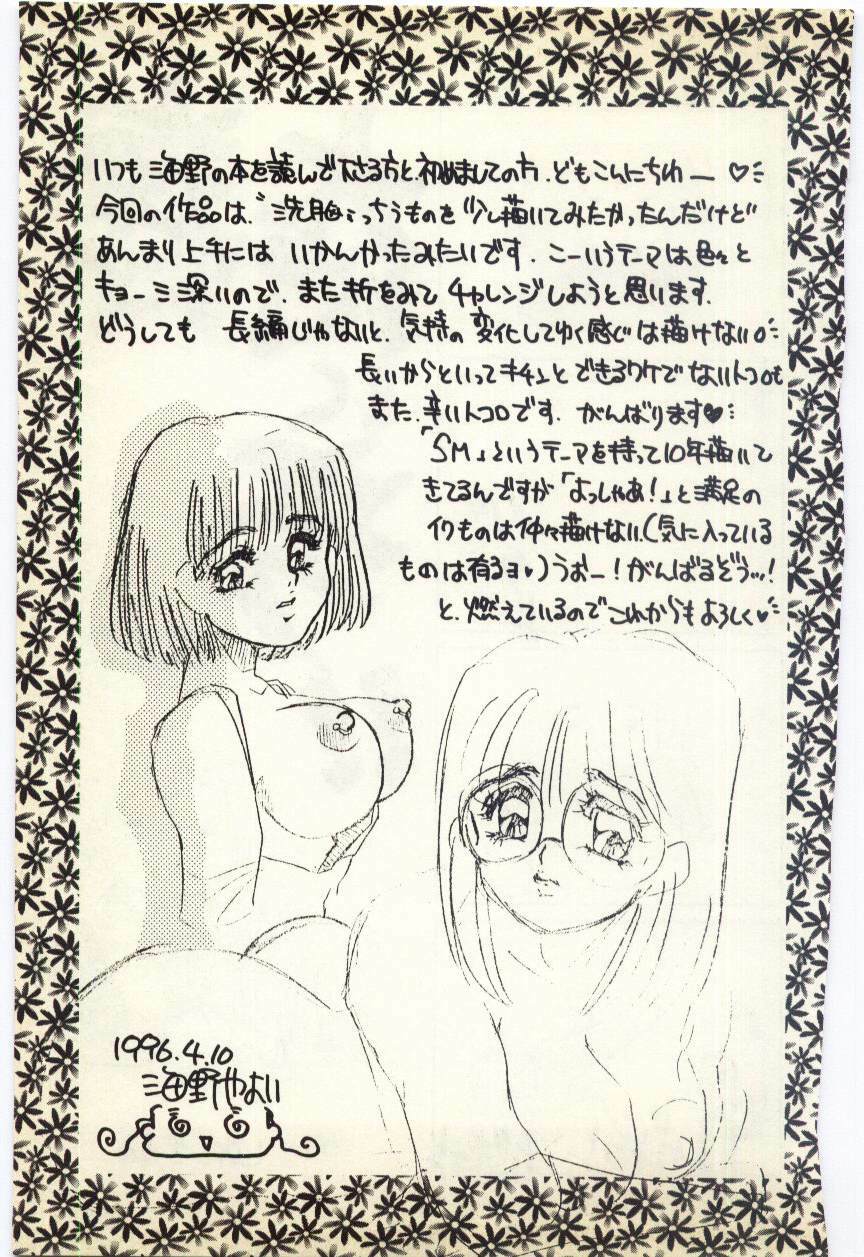 いつも海野の本を読んで下さる方と、初めましての方、どもこんにちわー♡
今回の作品は、“洗脳”っちうものを少し描いてみたかったんだけど
あんまり上手には いかんかったみたいです。こーいうテーマは色々と
キョーミ深いので、また折をみて チャレンジしようと思います。
どうしても 長編じゃないと、気持の変化してゆく感じは描けない。
長いからといってキチンとできるワケでないトコロも
また、辛いトコロです。がんばります♥
「SM」というテーマを持って10年描いて
きてるんですが「よっしゃあ!」と満足の
イクものは仲々描けない。(気に入っている
ものは有るョ♥)うおー!がんばるぞうッ!
と、燃えているのでこれからもよろしく♥
1996.4.10
海野やよい